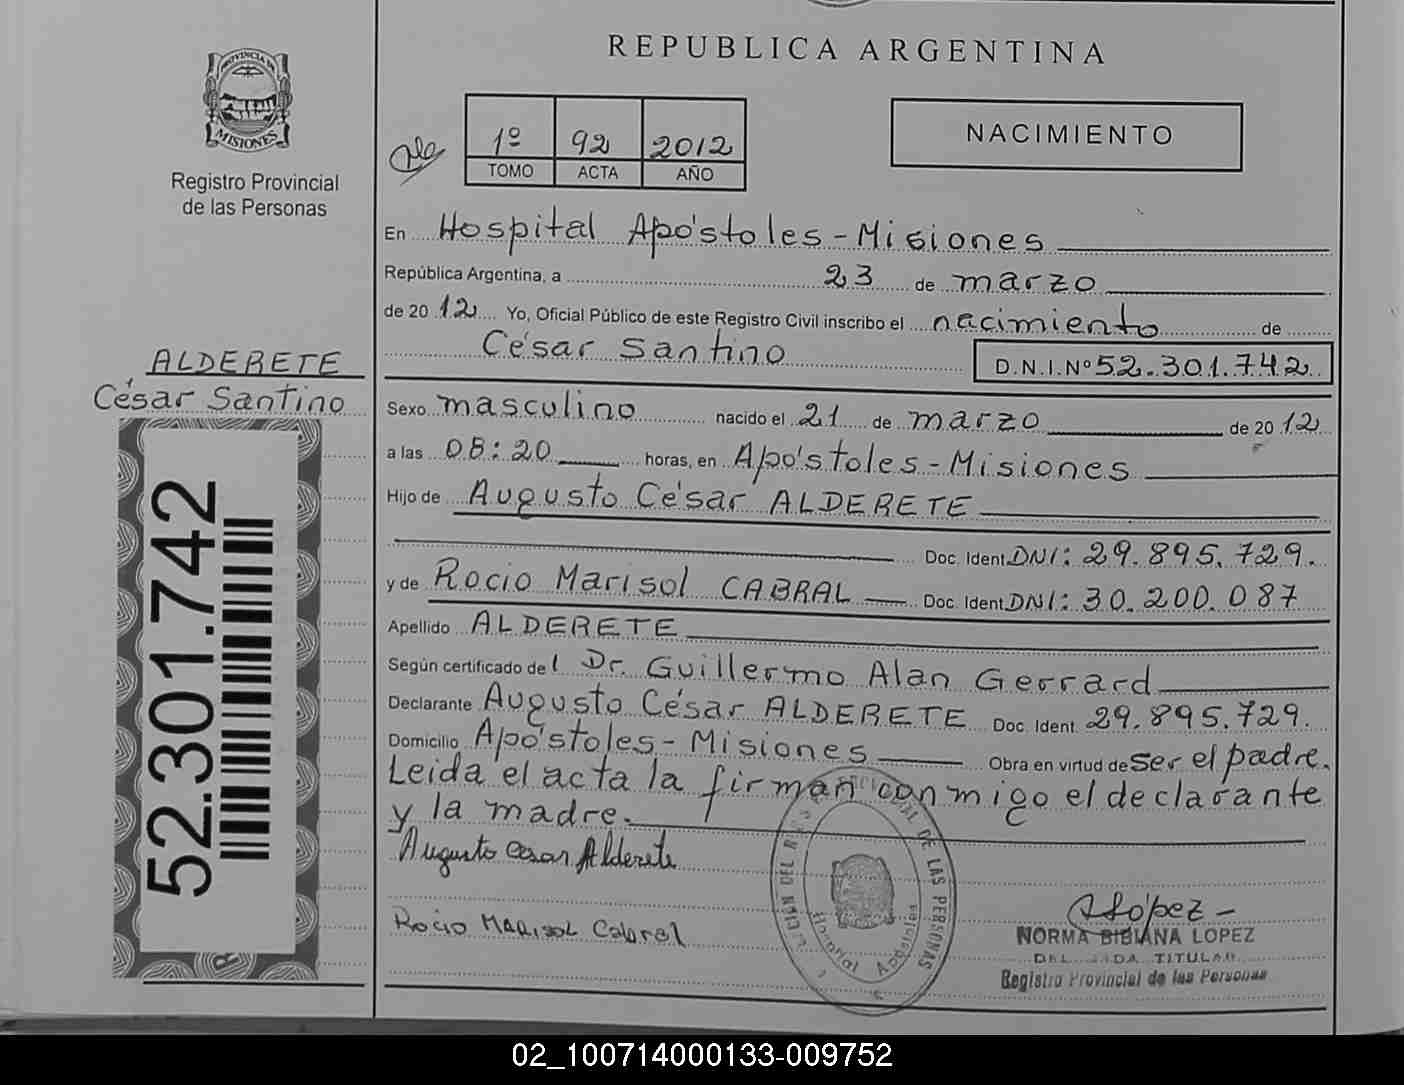 REPUBLICA ARGENTINA
PROVINCIA DE
MISIONES
Registro Provincial
de las Personas
1º 92 2012
TOMO ACTA AÑO
NACIMIENTO
En Hospital Apóstoles - Misiones
República Argentina, a 23 de marzo
de 2012 Yo, Oficial Público de este Registro Civil inscribo el nacimiento de
César Santino D.N.I. Nº 52.301.742
ALDERETE
César Santino
52.301.742
Sexo masculino nacido el 21 de marzo de 2012
a las 08:20 horas, en Apóstoles - Misiones
Hijo de Augusto César ALDERETE
Doc. Ident. DNI: 29.895.729.
y de Rocio Marisol CABRAL Doc. Ident. DNI: 30.200.087
Apellido ALDERETE
Según certificado del Dr. Guillermo Alan Gerrard
Declarante Augusto César ALDERETE Doc. Ident. 29.895.729.
Domicilio Apóstoles - Misiones Obra en virtud de ser el padre.
Leida el acta la firman conmigo el declarante
y la madre.
Augusto Cesar Alderete
Rocio Marisol Cabral
DE LAS PERSONAS
Hospital Apóstoles
López
NORMA BIBIANA LOPEZ
TITULAR
Registro Provincial de las Personas
02_100714000133-009752